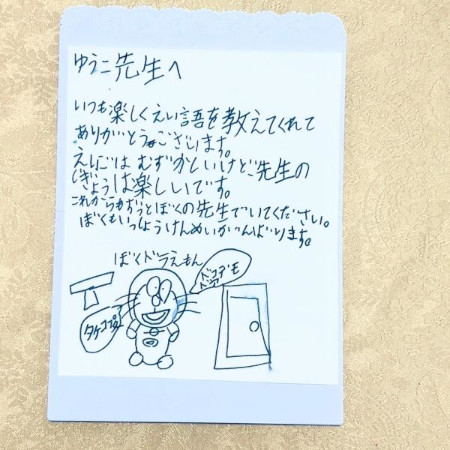 ゆうこ先生へ
いつも楽しくえい語を教えてくれて
ありがとうございます。
えいごはむずかしいけど先生の
じぎょうは楽しいです。
これからもずっとぼくの先生でいてください。
ぼくもいっしょうけんめいがんばります。
ぼくドラえもん
ドコデモ
ドア
タケコプター